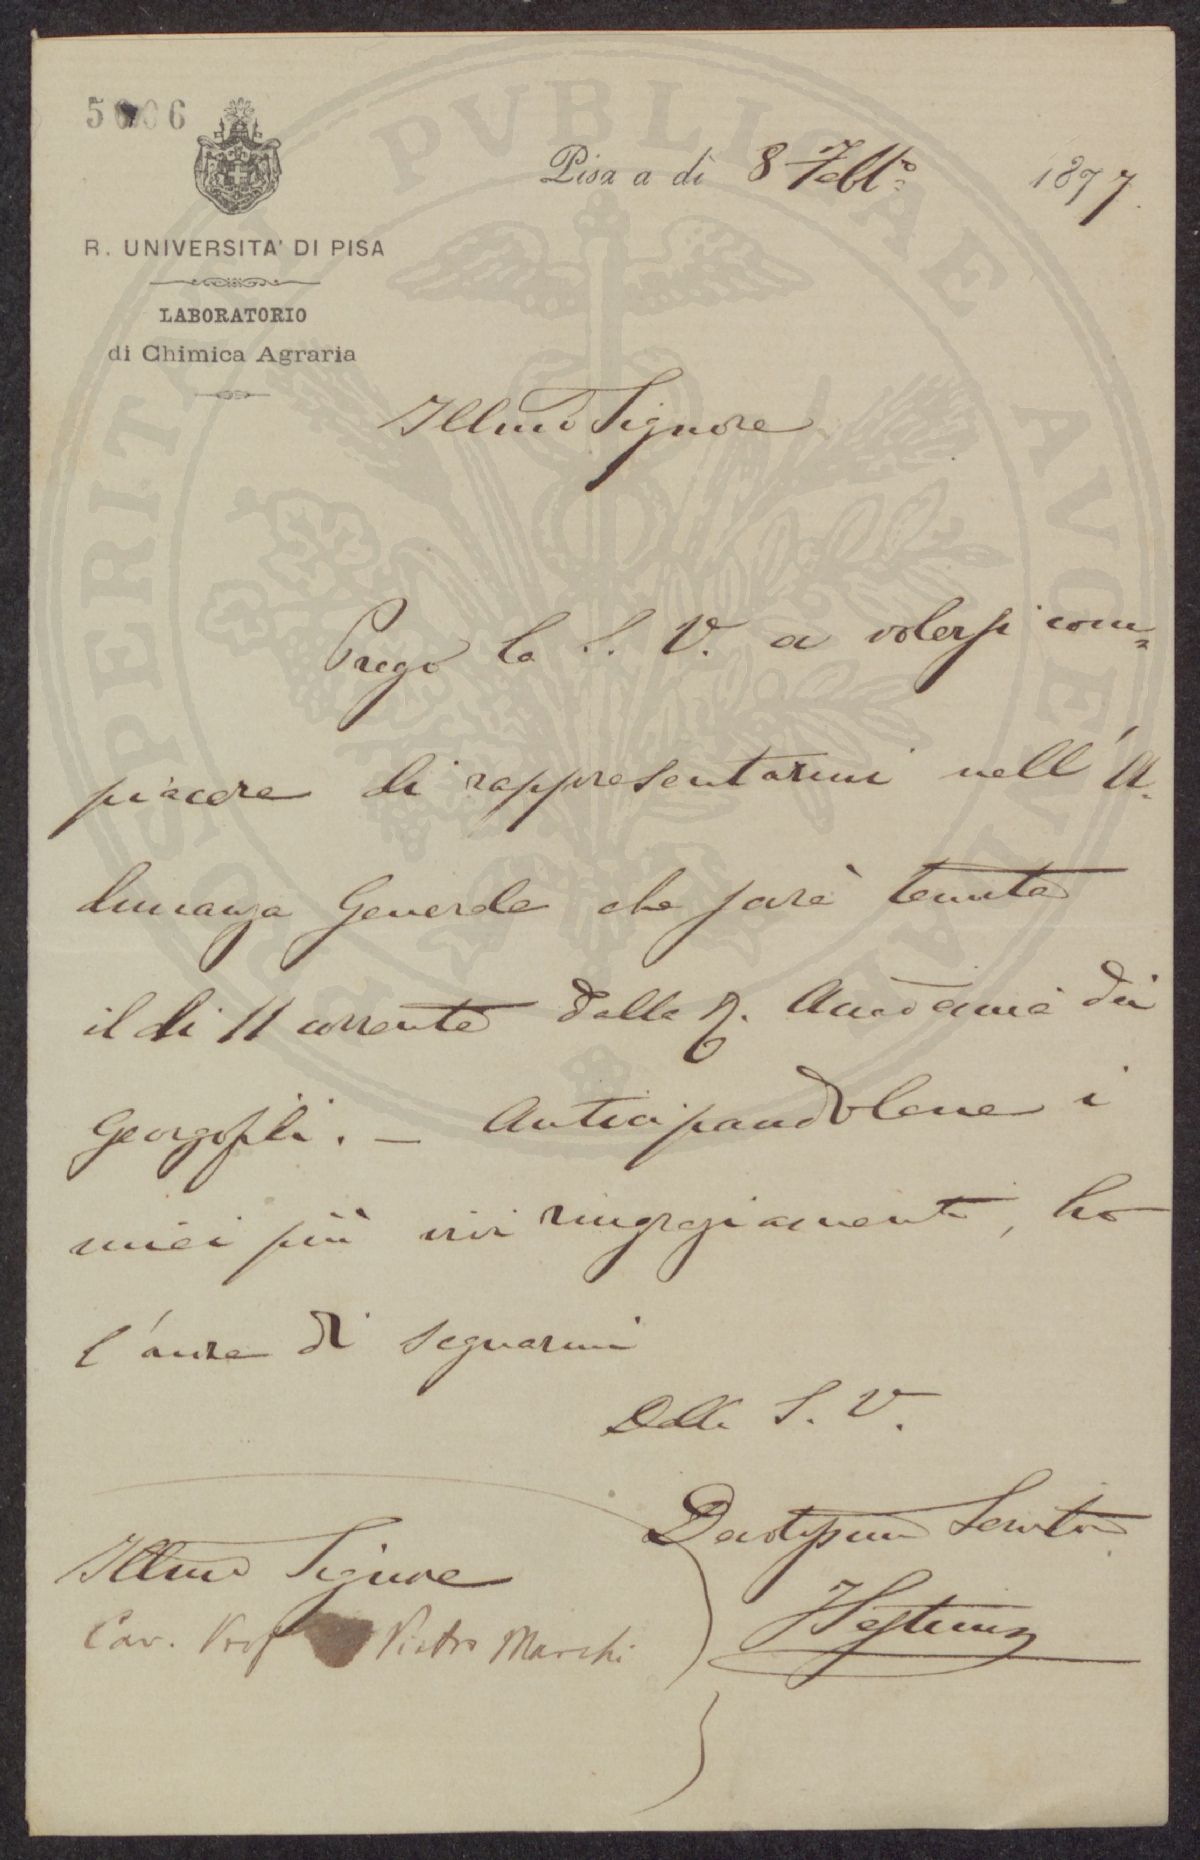 5006
R. UNIVERSITA' DI PISA
LABORATORIO
di Chimica Agraria
Pisa a dì 8 Febb.º 1897.
Illmo Signore
Prego la S. V. a volersi com=
piacere di rappresentarmi nell'A-
dunanza Generale che sarà tenuta
il di 11 corrente dalla R. Accademia dei
Georgofili. — Anticipandolene i
miei più vivi ringraziamenti, ho
l'onore di segnarmi
Della S. V.
Devotissimo Servitore
FSestini
Illmo Signore
Cav. Prof Pietro Marchi
PROSPERITATI PVBLICAE AVGENDAE